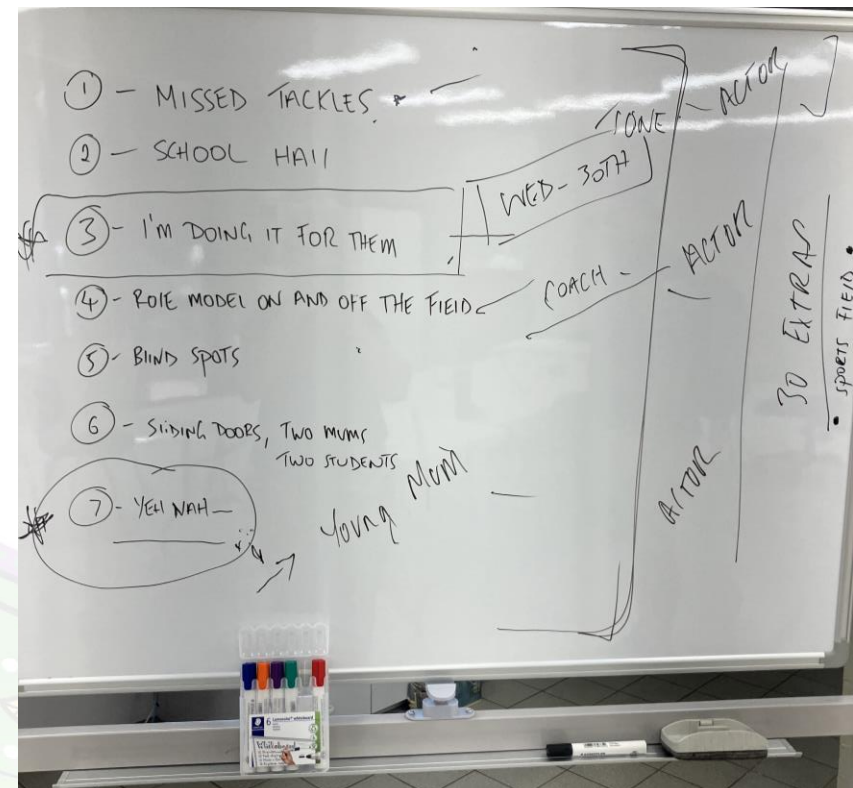 ① - MISSED TACKLES.
② - SCHOOL HALL
③ - I'M DOING IT FOR THEM
④ - ROLE MODEL ON AND OFF THE FIELD
⑤ - BLIND SPOTS
⑥ - SLIDING DOORS, TWO MUMS
TWO STUDENTS
⑦ - YEH NAH -
YOUNG MUM
WED - 30TH
COACH -
ACTOR
ACTOR
ACTOR
30 EXTRAS
• SPORTS FIELD •
STAEDTLER
6
Lumocolor whiteboard